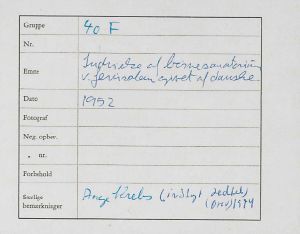 Gruppe 40 F
Nr.
Emne Indvielse af børnesanatorium
v. Jerusalem opret af danske
Dato 1952
Fotograf
Neg. opbev.
„ nr.
Forbehold
Særlige
bemærkninger Aage Krebs (
1974